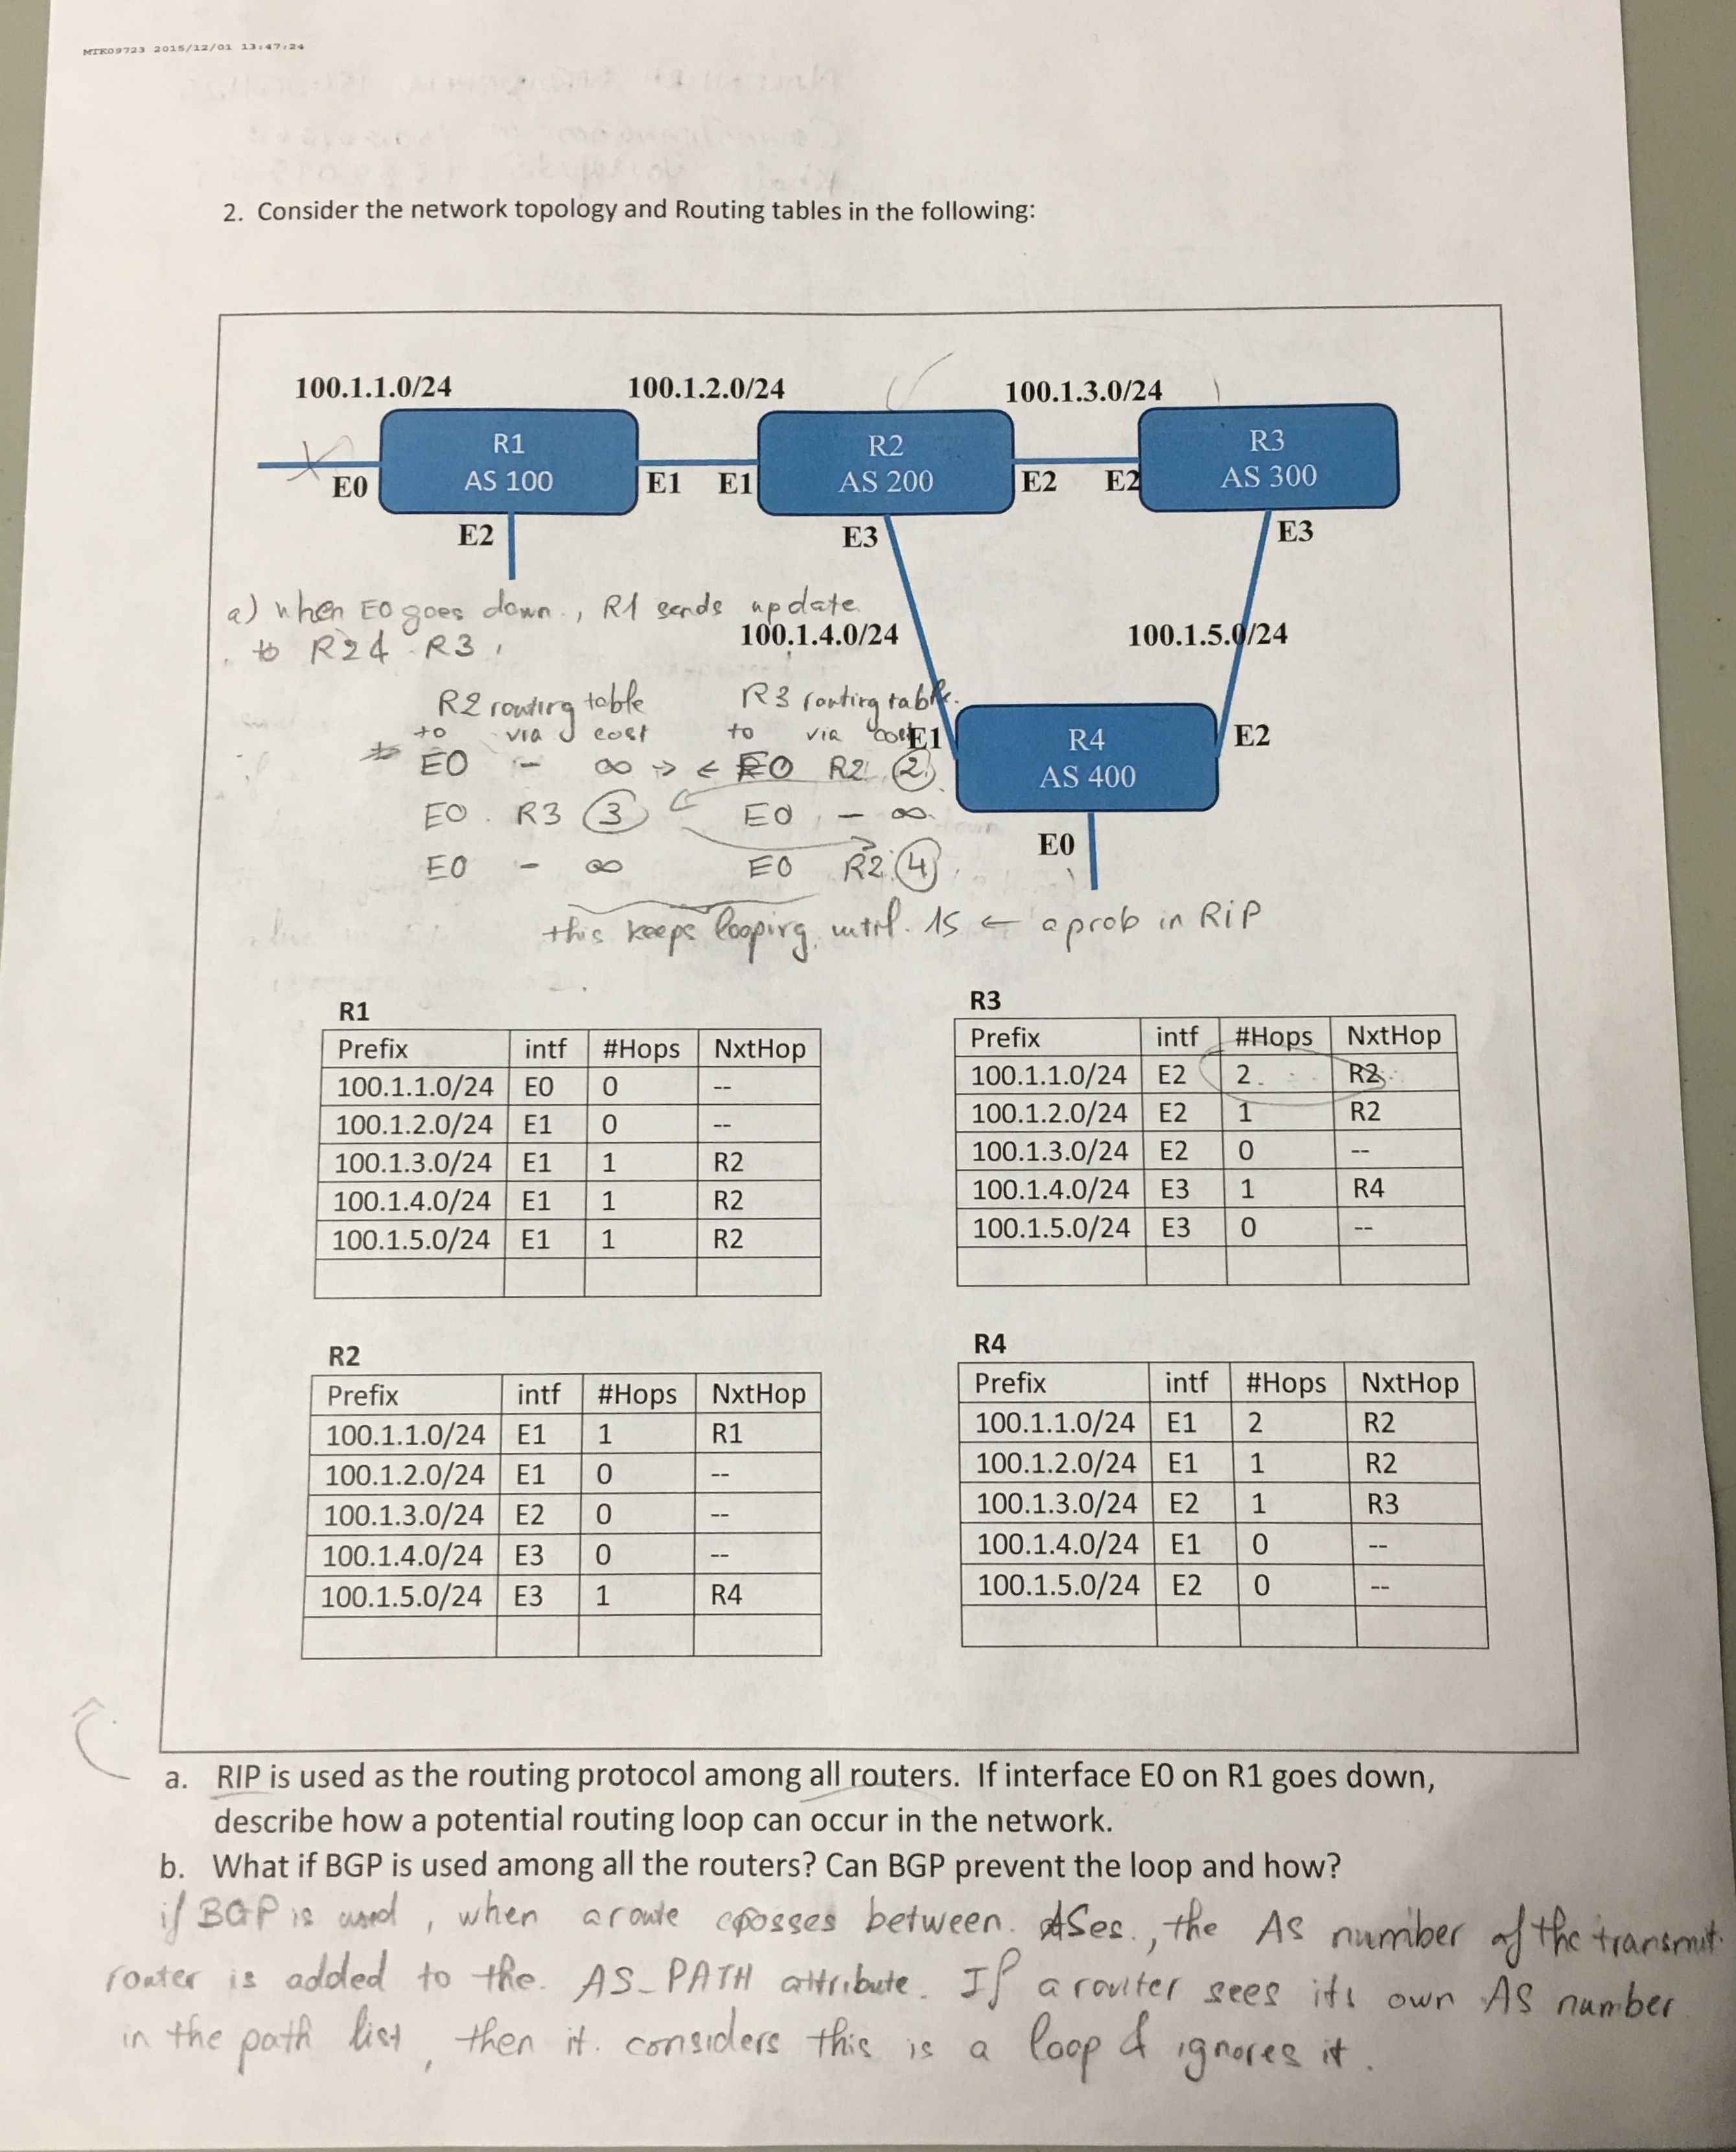 MTK09723 2015/12/01 13:47:24
2. Consider the network topology and Routing tables in the following:
100.1.1.0/24 100.1.2.0/24 100.1.3.0/24
R1 R2 R3
AS 100 AS 200 AS 300
E0 E1 E1 E2 E2
E2 E3 E3
a) when E0 goes down., R1 sends update
to R2 & R3.
100.1.4.0/24 100.1.5.0/24
R2 routing table R3 routing table.
to via cost to via cost
E1 R4 E2
AS 400
E0 - ∞ → ← E0 R2 2
E0 R3 3 E0 - ∞
E0 - ∞ E0 R2 4
E0
this keeps looping until 15 ← a prob in RIP
R1
Prefix intf #Hops NxtHop
100.1.1.0/24 E0 0 --
100.1.2.0/24 E1 0 --
100.1.3.0/24 E1 1 R2
100.1.4.0/24 E1 1 R2
100.1.5.0/24 E1 1 R2
R3
Prefix intf #Hops NxtHop
100.1.1.0/24 E2 2 R2
100.1.2.0/24 E2 1 R2
100.1.3.0/24 E2 0 --
100.1.4.0/24 E3 1 R4
100.1.5.0/24 E3 0 --
R2
Prefix intf #Hops NxtHop
100.1.1.0/24 E1 1 R1
100.1.2.0/24 E1 0 --
100.1.3.0/24 E2 0 --
100.1.4.0/24 E3 0 --
100.1.5.0/24 E3 1 R4
R4
Prefix intf #Hops NxtHop
100.1.1.0/24 E1 2 R2
100.1.2.0/24 E1 1 R2
100.1.3.0/24 E2 1 R3
100.1.4.0/24 E1 0 --
100.1.5.0/24 E2 0 --
a. RIP is used as the routing protocol among all routers. If interface E0 on R1 goes down,
describe how a potential routing loop can occur in the network.
b. What if BGP is used among all the routers? Can BGP prevent the loop and how?
if BGP is used, when a route crosses between ASes., the AS number of the transmit
router is added to the AS_PATH attribute. If a router sees its own AS number
in the path list, then it considers this is a loop & ignores it.